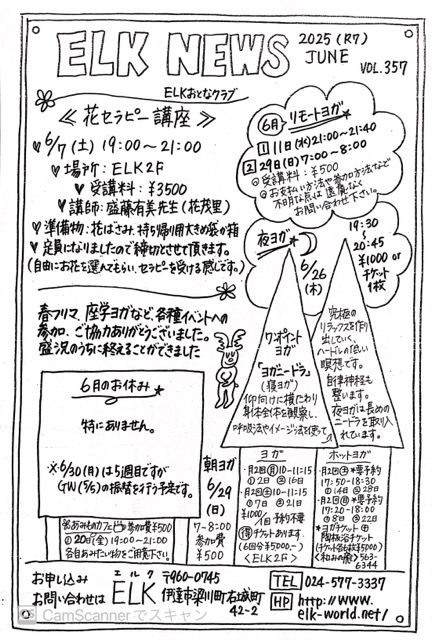 ELK NEWS
2025 (R7)
JUNE
VOL.357
ELKおとなクラブ
≪花セラピー講座≫
♥6/7(土) 19:00〜21:00
♥場所:ELK2F
♥受講料:¥3500
♥講師:盛藤有美先生(花茂里)
♥準備物:花ばさみ、持ち帰り用大きめ袋か箱
♥定員になりましたので締切とさせて頂きます。
(自由にお花を選んでもらい、セラピーを受ける感じです。)
6月 リモートヨガ
1 11日(水)21:00〜21:40
2 29日(日)7:00〜8:00
◎受講料:¥500
◎お支払い方法や参加方法など
不明な点は遠慮なく
お問い合わせ下さい。
夜ヨガ
6/26
(木)
19:30
〜
20:45
¥1000 or
チケット
1枚
春フリマ、座学ヨガなど、各種イベントへの
参加、ご協力ありがとうございました。
盛況のうちに終えることができました
6月のお休み
特にありません。
※6/30(月)は5週目ですが
GW(5/5)の振替を行う予定です。
ワンポイント
ヨガ
「ヨガニードラ」
(寝ヨガ)
仰向けに横たわり
身体全体を観察し、
呼吸法やイメージ法を使って
究極の
リラックスを作り
出していく、
ハードルの低い
瞑想です。
自律神経も
整います。
夜ヨガは長めの
ニードラを取り入
れています。
朝ヨガ
6/29
(日)
7-8:00
参加費
¥500
ヨガ
・月2回(月)10-11:15
①2日 ②16日
・月2回(土)10-11:15
①7日 ②21日
¥1000/1回 予約不要
チケットあります。
(6回分¥5000-)
<ELK2F>
ホットヨガ
・月2回(土)*要予約
17:50-18:30
①14日 ②28日
・月2回(日)*要予約
17:20-18:00
①8日 ②22日
*ヨガチケット+
陶板浴チケット
(チケット各6枚¥5000)
<和みの蔵>563-
6344
編あみものカフェ 参加費¥500
①20日(金) 19:00-21:00
各自あみたい物をご用意下さい。
お申し込み
お問い合わせは
エルク
ELK
〒960-0745
伊達市梁川町右城町
42-2
TEL 024-577-3337
HP http://www.
elk-world.net/
CamScannerでスキャン